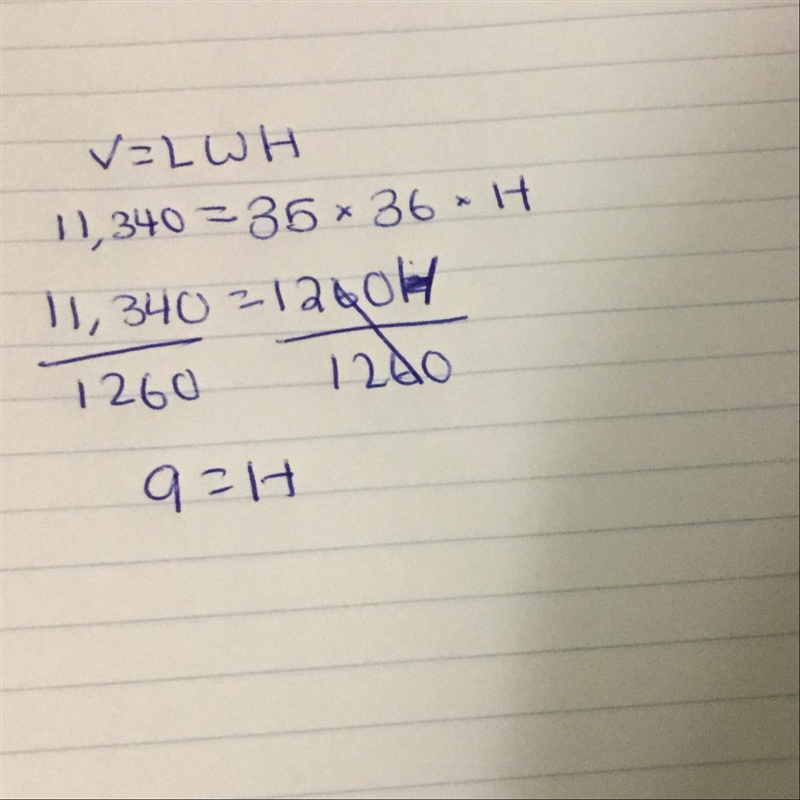 V=LWH
11,340=35×36×H
11,340=1260H
1260 1260
9=H